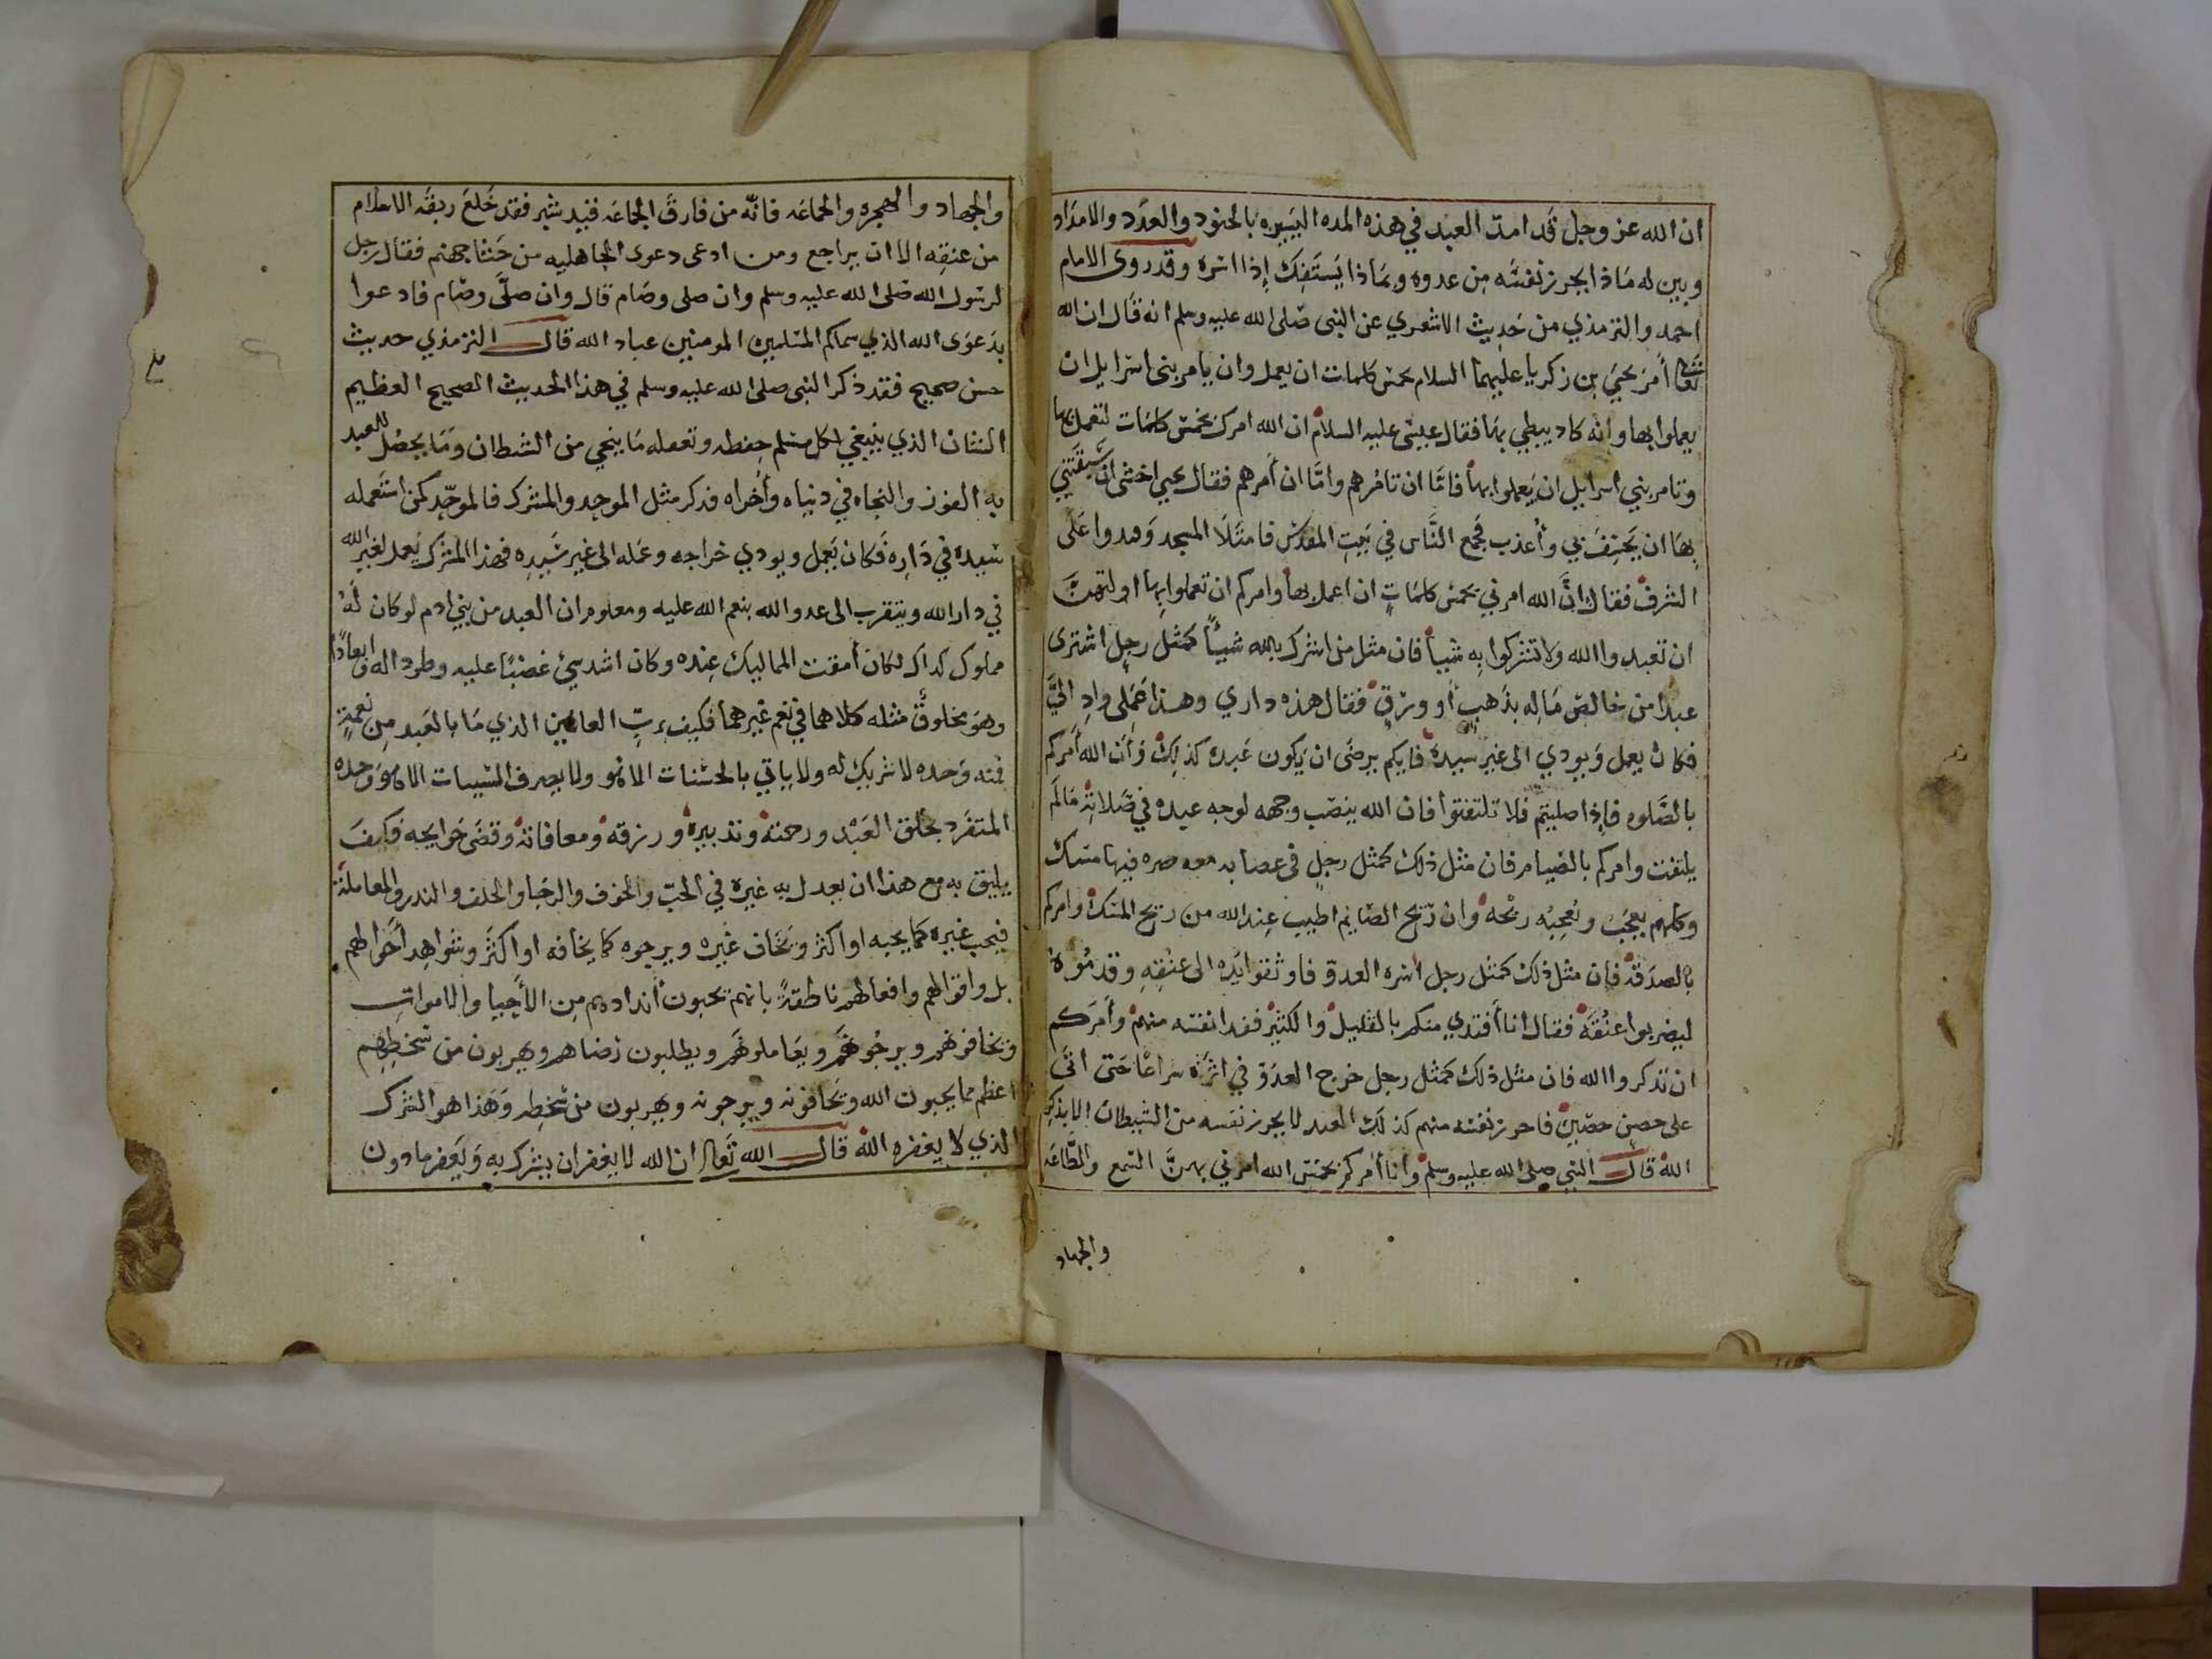 ان الله عز وجل قد امد العبد في هذه المده اليسيره بالجنود والعدد والامداد
وبين له مَاذا يحرز نفسَه مِن عدوه وبمَاذا يَستَفِك إذا اسره وقد روى الامام
احمد والترمذي من حَديث الاشعري عن النبى صَلى الله عليه وسلم انه قال ان الله
تعالى أمرَ يحيَ بن زكريا عليهما السلام بخمس كلمات ان يعمل وان يامر بنى اسرايل ان
يعملوا بها وانه كاد يبطي بهَا فقال عيسى عليه السلام ان الله امرك بخمس كلمَات لتعمل بها
وتامر بني اسرايل ان يَعملوا بها فامَّا ان تامُرهم وامَّا ان أمرهم فقال يحيى اخشى ان سَبَقتني
بهَا ان يَخسِفَ بي وأعذب فجمع النَّاس في بَيتِ المقدس فامتَلَا المسجد وقعدوا عَلَى
الشرف فقال انَّ الله امرني بخمس كلمَاتٍ ان اعمل بها وامركم ان تعملوا بها اولتهنَّ
ان تعبدوا الله ولا تشركوا بِه شيأ فان مثل من اشرك بالله شيئًا كمثل رجلٍ اشترى
عبدًا من خالصِ مَاله بذَهبٍ أو ورَقٍ فقال هذه داري وهذا عَمَلِى وادِ اليَّ
فكان يعمل وَيودي الى غير سيده فايكم يرضَى ان يكون عَبده كذلِك وَأن الله أمركم
بالصَّلوه فإذا صليتم فلا تلتفتوا فان الله ينصَب وجهه لوجه عبده في صَلاته مَا لَم
يلتفت وامركم بالصِيام فان مثل ذلك كمثل رجلٍ فى عصابه معه صره فيها مسك
وكلهم يعجَبُ ويُعجِبُه ريحُه وان ريح الصَايم اطيب عِند الله من ريح المسك وامركم
بالصدَقه فإن مثل ذلك كمثل رجل اسَره العدوّ فاوثقوا يَده الى عنُقِهِ وقدمُوه
ليضربوا عنُقَه فقال انا أفتدي منكم بالقليل والكثير ففدا نفسَه منهم وأمرَكم
ان تذكروا الله فان مثل ذلك كمثل رجل خرج العدوّ في اثرَه سراعًا حَتى اتَى
على حصن حصَين فاحرز نفسَه منهم كذلك العبد لا يحرز نفسه من الشيطان الا بذكر
الله قال النبي صلى الله عليه وسلم وأنا أمركم بخمس الله امرني بهنَّ السَمع والطَّاعَه
والجهاد
والجهاد والهجره والجماعَه فانّه من فارقَ الجماعَه قيد شبر فقد خَلعَ ربقه الاسلام
من عنقِه الا ان يراجع ومن ادعى دعوى الجاهليه من جَثا جهنم فقال رجل
لرسول الله صَلى الله عليه وسلم وان صلى وصَام قال وان صلَّى وصَام فادعوا
بدَعوَى الله الذي سماكم المسَلمين المومنين عباد الله قال الترمذي حديث
حسن صحيح فقد ذكر النبى صلى الله عليه وسلم في هذا الحديث الصحيح العظيم
الشان الذي ينبغي لكل مسلم حِفظه وتعقله مَا ينجي من الشيطان وَمَا يحصُل للعبد
به الفوز والنجاه في دنياه وأخراه فذكر مثل الموحِد والمشرك فالموحّد كمن استَعمله
سَيده في دَارِه فَكان يَعمل ويودي خراجه وعَمله الى غير سَيده فهذا المشرك يَعمل لغيرِ الله
في دار الله ويتقرب الى عدو الله بنعم الله عليه ومعلوم ان العبد من بَني ادم لو كان لَه
مملوك كذاك لكان أمقت المماليك عِنده وكان اشد سئ غضَبًا عليه وطردا له وابعادًا
وهوَ مخلوقٌ مثله كلاهما في نعم غيرهما فكيف برَبّ العالمين الذي مَا بالعَبد مِن نعمةٍ
فمنه وَحده لا شريك له ولا ياتي بالحسَنات الا هو ولا يصرف السَيئات الا هو وَحده
المتفَرد بخلق العَبْد ورحمته وتدبيره ورزقه ومعافاته وقضَى حَوايجه فكيفَ
يليق به مع هذا ان يعدل به غيره في الحبّ والخوف والرجَا والحلف والندر والمعاملة
فيحب غيره كما يحبه او اكثر ويخَاف غيره ويرجوه كما يخافه او اكثَر وشوَاهِد أحَوالهم
بل واقوالهم وافعالهم ناطقةً بانهم يحبون أندادهم مِن الأحِيا والاموات
ويخافونهم ويرجُونهَم ويعَاملونهَم ويطلبون رضاهم ويهربون من سَخطِهِم
اعظم مما يحبون الله ويخَافونه ويرجونه ويهربون من سَخطِه وَهَذا هو الشرك
الذي لا يغفره الله قال الله تَعالى ان الله لا يغفر ان يشَرك به وَيَغفر ما دون